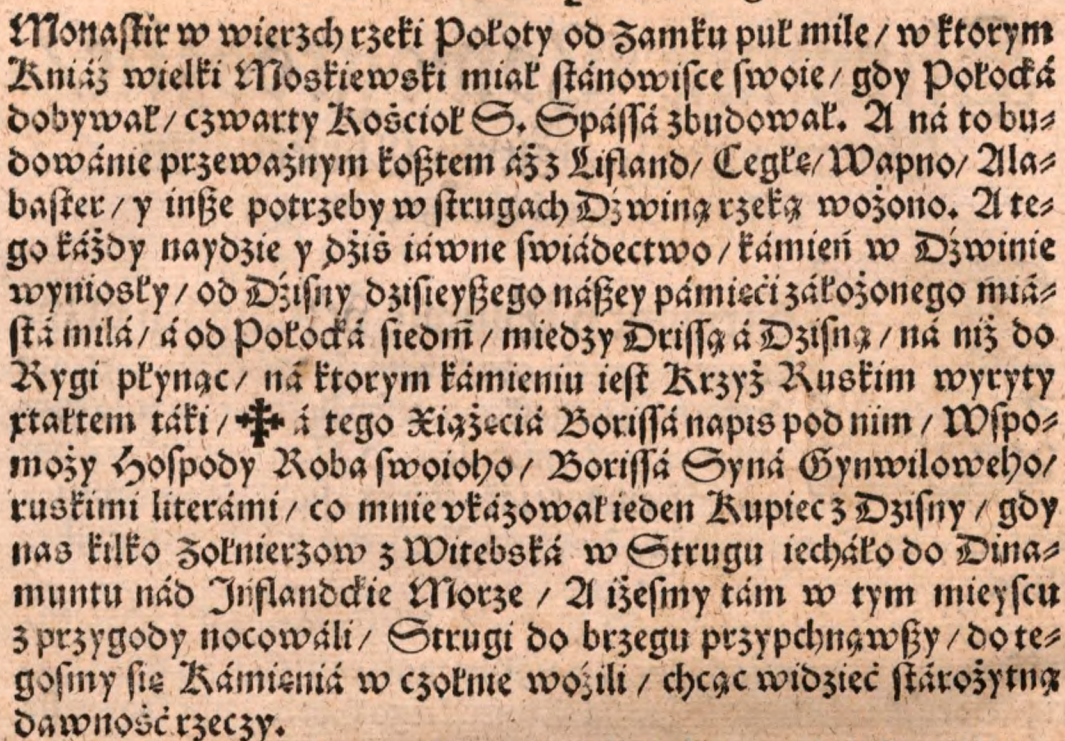 Monastir w wierzch rzeki Połoty od Zamku puł mile / w ktorym
Kniáź wielki Moskiewski miał stánowisce swoie / gdy Połocká
dobywał / czwarty Kośćioł S. Spássá zbudował. A ná to bu⸗
dowánie przeważnym kosztem áż z Lifland / Cegłę / Wapno / Ala⸗
baster / y insze potrzeby w strugach Dźwiną rzeką wożono. A te⸗
go káżdy naydzie y dźiś iáwne swiádectwo / kámień w Dźwinie
wyniosły / od Dźisny dzisieyszego nászey pámięći záłożonego miá⸗
stá milá / á od Połocká siedm̃ / miedzy Drissą á Dzisną / ná niż do
Rygi płynąc / ná ktorym kámieniu iest Krzyż Ruskim wyryty
xtałtem táki / ☨ á tego Xiążęciá Borissá napis pod nim / Wspo⸗
moży Hospody Roba swoioho / Borissá Syná Gynwiloweho /
ruskimi literámi / co mnie vkázował ieden Kupiec z Dzisny / gdy
nas kilko Zołnierzow z Witebská w Strugu iecháło do Dina⸗
muntu nád Inflandckie Morze / A iżesmy tám w tym mieyscu
z przygody nocowáli / Strugi do brzegu przypchnąwszy / do te⸗
gosmy się Kámieniá w czołnie woźili / chcąc widzieć stárożytną
dawność rzeczy.